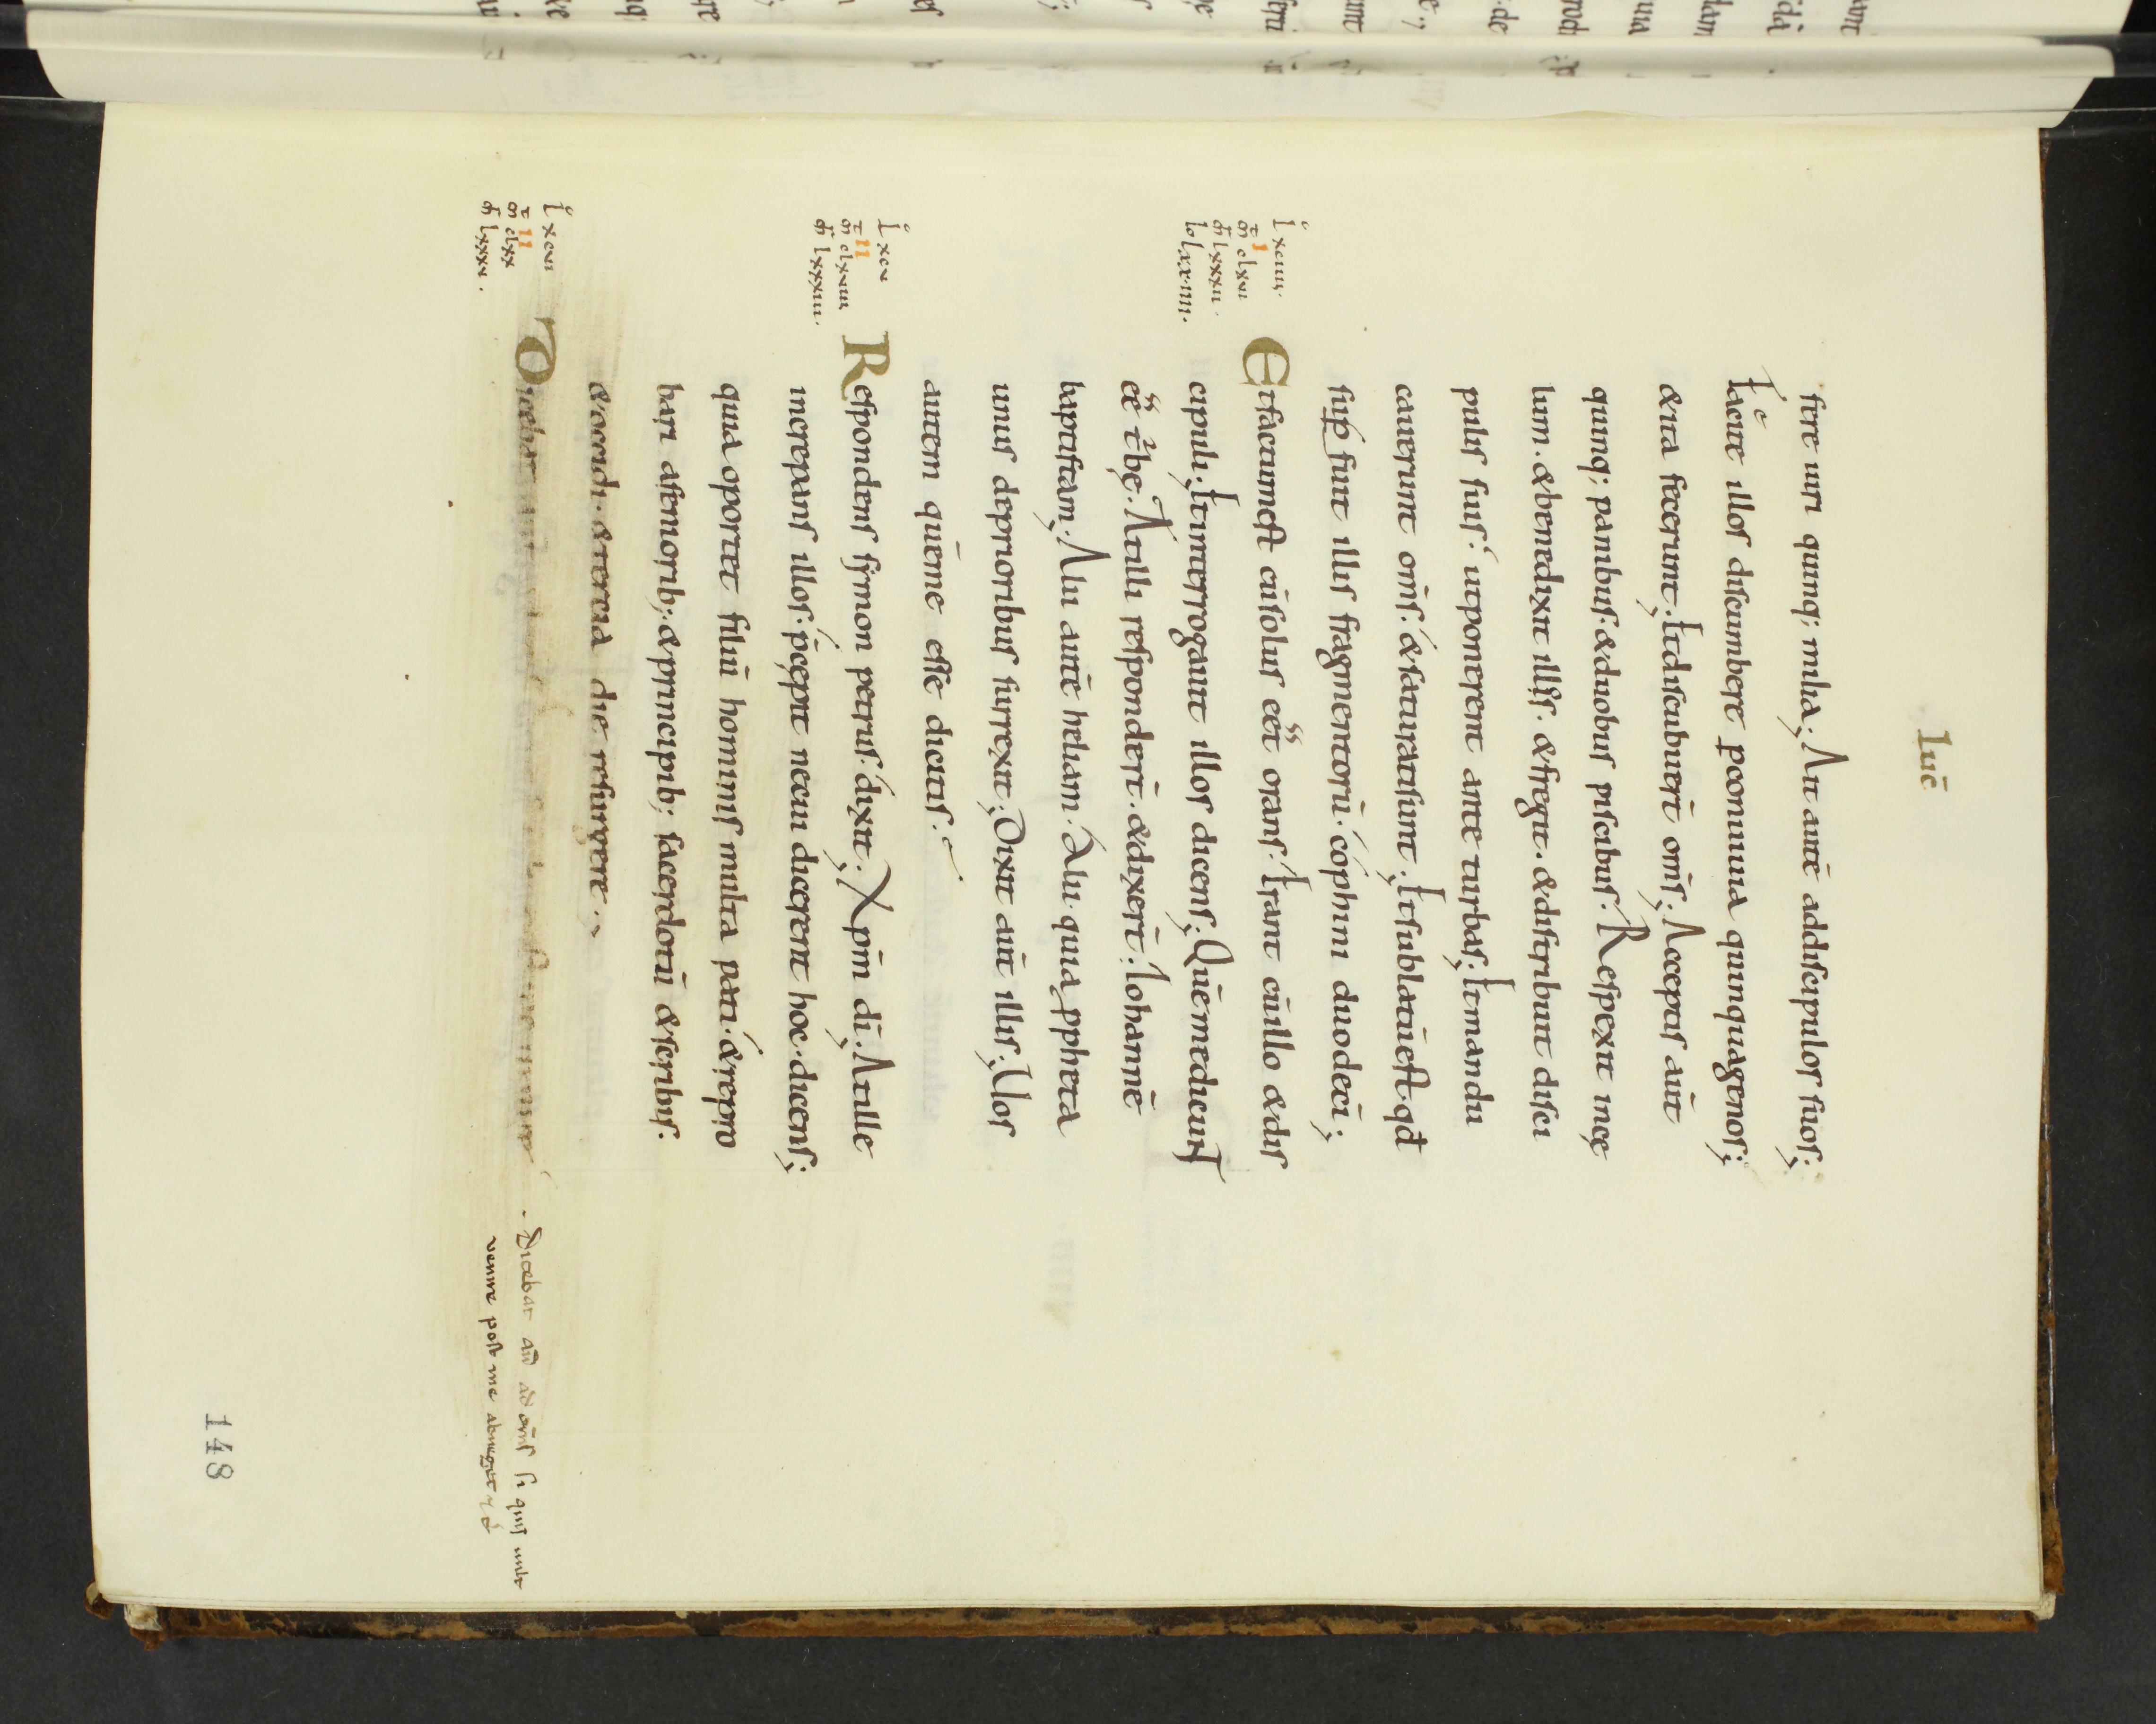 Luc̄
fere uiri quinq; milia; Ait autē addiscipulos suos;
Facite illos discumbere p conuiuia quinquagenos;
&ita fecerunt; Et discubuer̄t om̄s; Acceptis aūt
quinq; panibus. &duobus piscibus. Respexit incę
lum. &benedixit illis. &fregit. &distribuit disci
pulis suis. ut ponerent ante turbas; Et mandu
cauerunt om̄s. &saturatisunt; Et sublatūest. qđ
sup̱ fuit illis fragmentorū. cóphini duodecī;
Et factumest cūsolus eēt orans. Erant cūillo &dis
cipuli; Et interrogauit illos dicens; Quēmedicunt
eē tͬbę; Atilli responder̄t. &dixer̄t. Iohannē
baptistam; Alii autē heliam. Alii. quia ꝓpheta
unus deprioribus surrexit; Dixit aūt illis; Uos
autem quēme esse dicitis.
Respondens symon petrus. dixit; Xp̄m dī; Atille
increpans illos. p̄cępit necui dicerent hoc. dicens;
quia oportet filiū hominis multa pati. &repro
bari aseniorib; &principib; sacerdotū &scribis.
&occidi. &tercia die resurgere.
Dicebat
Dicebat aūt ad om̄s si quis uult
uenire post me abneg&
l̊ xciiii.
I
m̄t cxlvi
m̄r lxxxii.
io lxxiiii.
l̊ xcv
II
m̄t clxviii
m̄r lxxxiii.
l̊ xcvi
II
m̄t clxx
m̄r lxxxv.
148